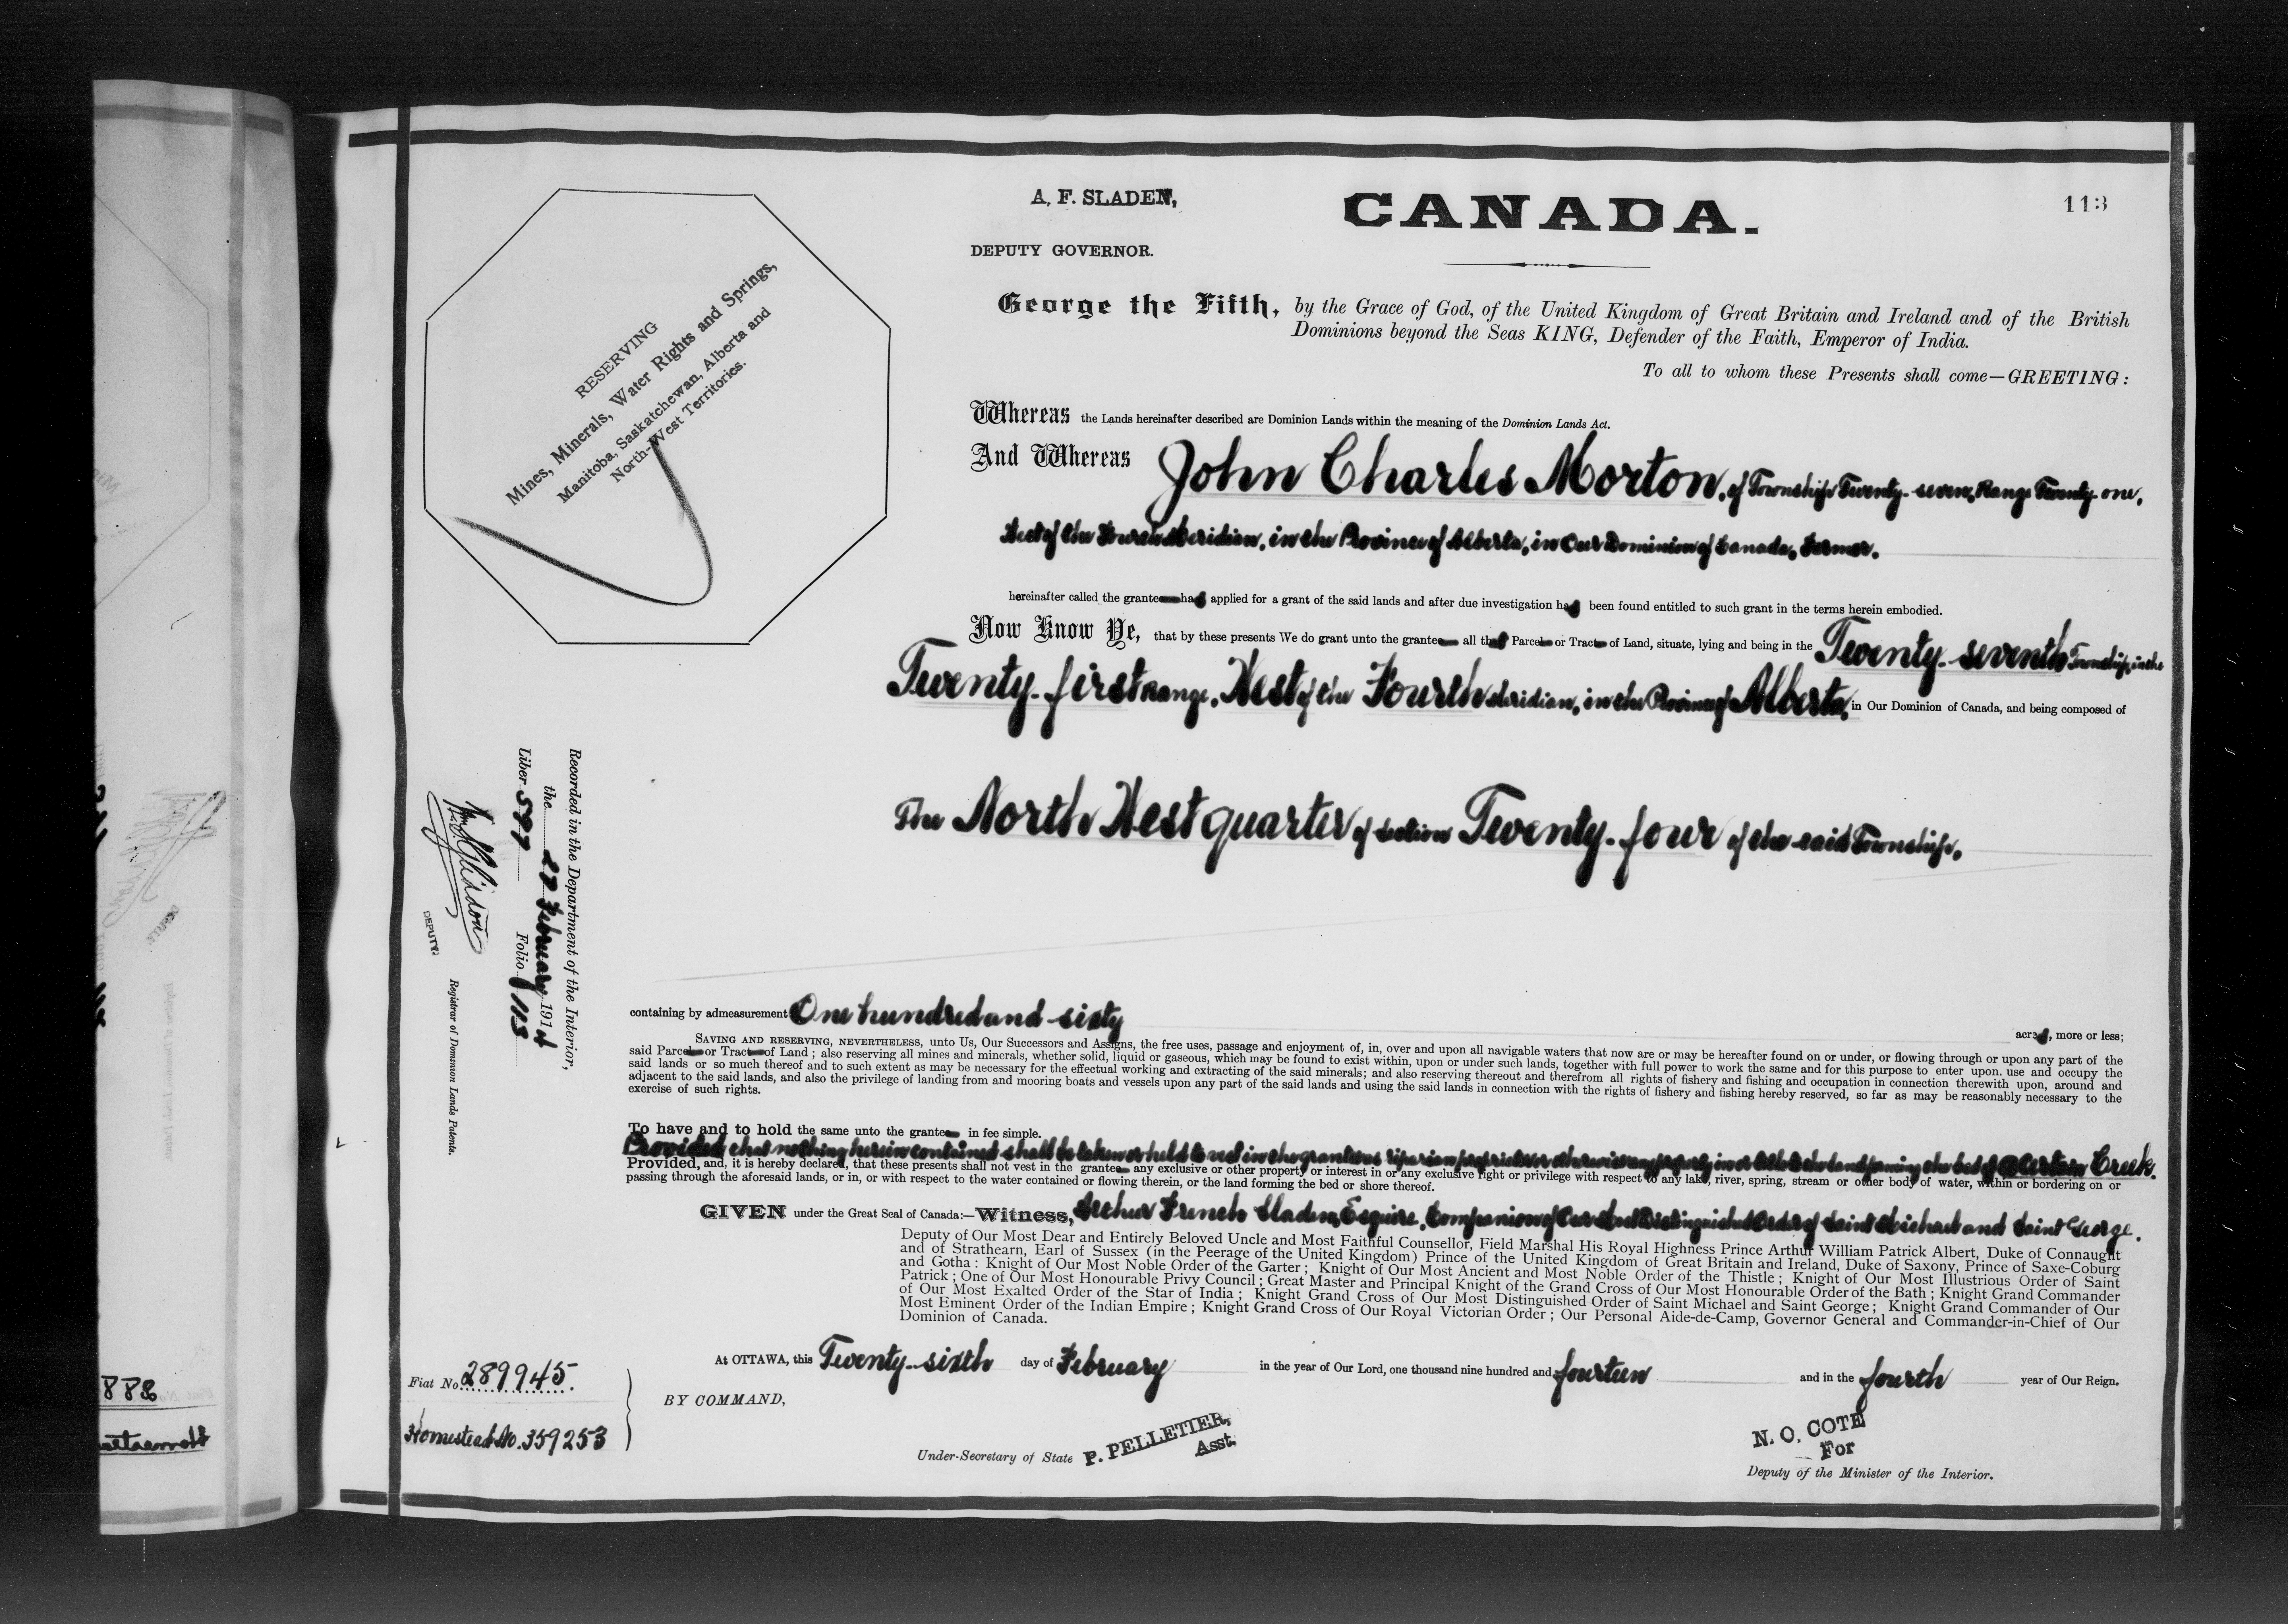 A. F. SLADEN,
DEPUTY GOVERNOR.
CANADA.
113
George the Fifth, by the Grace of God, of the United Kingdom of Great Britain and Ireland and of the British
Dominions beyond the Seas KING, Defender of the Faith, Emperor of India.
To all to whom these Presents shall come—GREETING:
RESERVING
Mines, Minerals, Water Rights and Springs,
Manitoba, Saskatchewan, Alberta and
North-West Territories.
Whereas the Lands hereinafter described are Dominion Lands within the meaning of the Dominion Lands Act.
And Whereas John Charles Morton, of Township Twenty-seven, Range Twenty-one,
West of the Fourth Meridian, in the Province of Alberta, in Our Dominion of Canada, Farmer.
hereinafter called the grantee has applied for a grant of the said lands and after due investigation has been found entitled to such grant in the terms herein embodied.
Now Know Ye, that by these presents We do grant unto the grantee all that Parcel or Tract of Land, situate, lying and being in the Twenty-seventh Township, in the
Twenty-first Range, West of the Fourth Meridian, in the Province of Alberta, in Our Dominion of Canada, and being composed of
The North West quarter of Section Twenty-four of the said Township.
Recorded in the Department of the Interior,
the 27 February 1914
Liber 597 Folio 113
DEPUTY
Registrar of Dominion Lands Patents.
containing by admeasurement One hundred and sixty acres, more or less;
SAVING AND RESERVING, NEVERTHELESS, unto Us, Our Successors and Assigns, the free uses, passage and enjoyment of, in, over and upon all navigable waters that now are or may be hereafter found on or under, or flowing through or upon any part of the
said Parcel or Tract of Land; also reserving all mines and minerals, whether solid, liquid or gaseous, which may be found to exist within, upon or under such lands, together with full power to work the same and for this purpose to enter upon, use and occupy the
said lands or so much thereof and to such extent as may be necessary for the effectual working and extracting of the said minerals; and also reserving thereout and therefrom all rights of fishery and fishing and occupation in connection therewith upon, around and
adjacent to the said lands, and also the privilege of landing from and mooring boats and vessels upon any part of the said lands and using the said lands in connection with the rights of fishery and fishing hereby reserved, so far as may be reasonably necessary to the
exercise of such rights.
To have and to hold the same unto the grantee in fee simple.
Provided that nothing herein contained shall be taken or held to vest in the grantee as riparian proprietor or otherwise any property in or title to the land forming the bed of a Certain Creek.
Provided, and, it is hereby declared, that these presents shall not vest in the grantee any exclusive or other property or interest in or any exclusive right or privilege with respect to any lake, river, spring, stream or other body of water, within or bordering on or
passing through the aforesaid lands, or in, or with respect to the water contained or flowing therein, or the land forming the bed or shore thereof.
GIVEN under the Great Seal of Canada:—Witness, Arthur French Sladen, Esquire, Companion of Our Most Distinguished Order of Saint Michael and Saint George.
Deputy of Our Most Dear and Entirely Beloved Uncle and Most Faithful Counsellor, Field Marshal His Royal Highness Prince Arthur William Patrick Albert, Duke of Connaught
and of Strathearn, Earl of Sussex (in the Peerage of the United Kingdom) Prince of the United Kingdom of Great Britain and Ireland, Duke of Saxony, Prince of Saxe-Coburg
and Gotha: Knight of Our Most Noble Order of the Garter; Knight of Our Most Ancient and Most Noble Order of the Thistle; Knight of Our Most Illustrious Order of Saint
Patrick; One of Our Most Honourable Privy Council; Great Master and Principal Knight of the Grand Cross of Our Most Honourable Order of the Bath; Knight Grand Commander
of Our Most Exalted Order of the Star of India; Knight Grand Cross of Our Most Distinguished Order of Saint Michael and Saint George; Knight Grand Commander of Our
Most Eminent Order of the Indian Empire; Knight Grand Cross of Our Royal Victorian Order; Our Personal Aide-de-Camp, Governor General and Commander-in-Chief of Our
Dominion of Canada.
At OTTAWA, this Twenty-sixth day of February in the year of Our Lord, one thousand nine hundred and fourteen and in the fourth year of Our Reign.
BY COMMAND,
Fiat No. 289945.
Homestead No. 359253
Under-Secretary of State P. PELLETIER,
Asst.
N. O. COTE
For
Deputy of the Minister of the Interior.